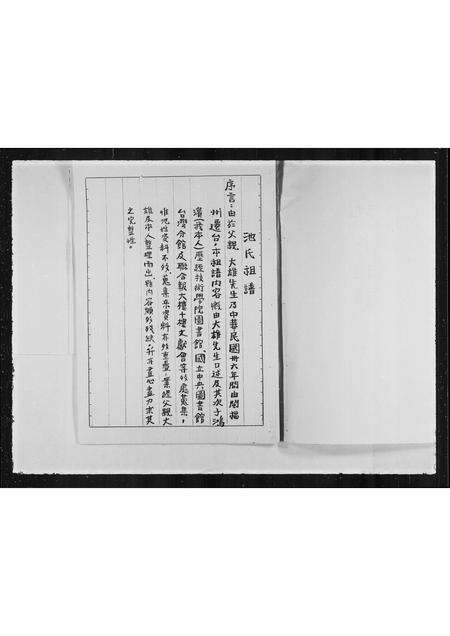 池氏祖譜
序言：由於父親 大雄先生乃中華民國卅六年間由閩福
州遷台，本祖譜內容概由大雄先生口述及其次子鴻
濱(我本人)歷經技術學院圖書館、國立中央圖書館
台灣分館及聯合報大樓十樓文獻會等各處蒐集，
唯池姓資料不多，蒐集來資料亦多重疊，業經父親大
雄及本人整理而出，雖內容頗多殘缺，亦盡心盡力求其
之完整性。